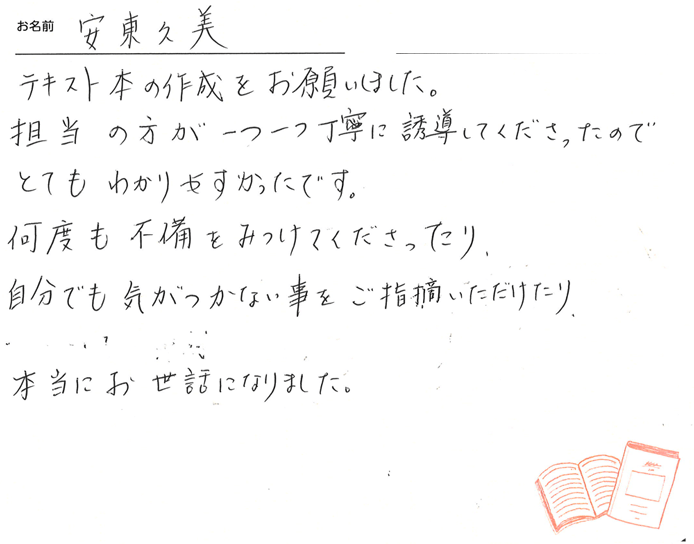 お名前 安東久美
テキスト本の作成をお願いしました。
担当の方が一つ一つ丁寧に誘導してくださったので
とてもわかりやすかったです。
何度も不備をみつけてくださったり、
自分でも気がつかない事をご指摘いただけたり、
本当にお世話になりました。